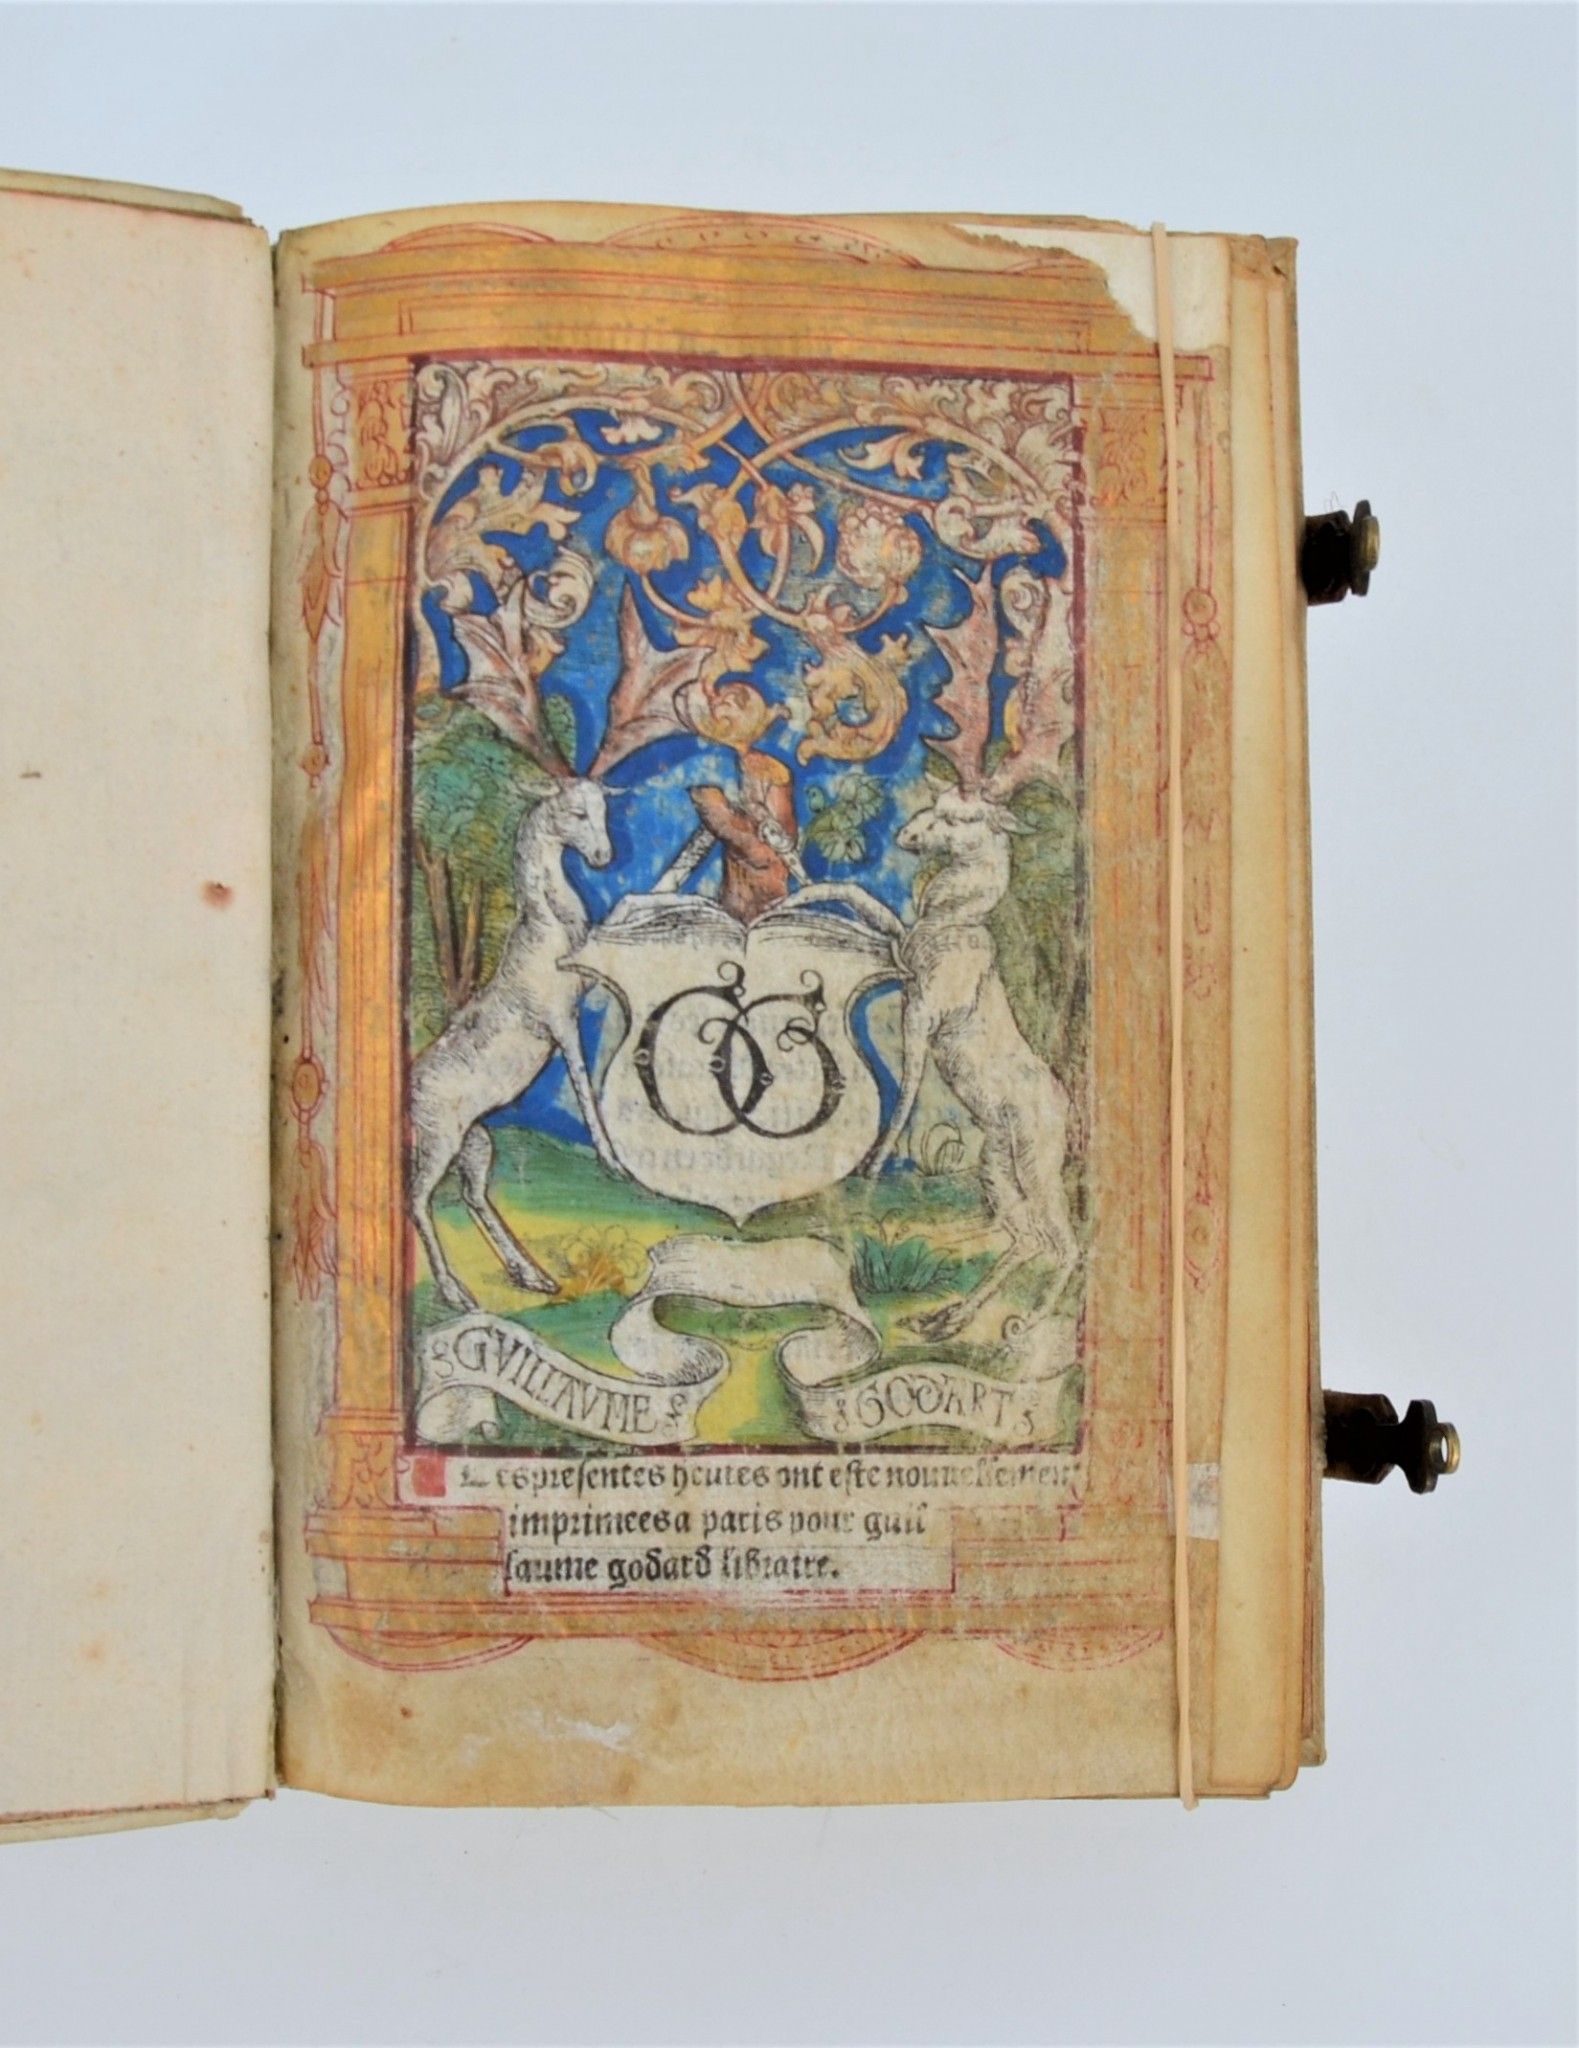 GG
GVILLAVME
GODART
Les presentes heures ont este nouvellement
imprimees a paris pour guil
laume godard libraire.